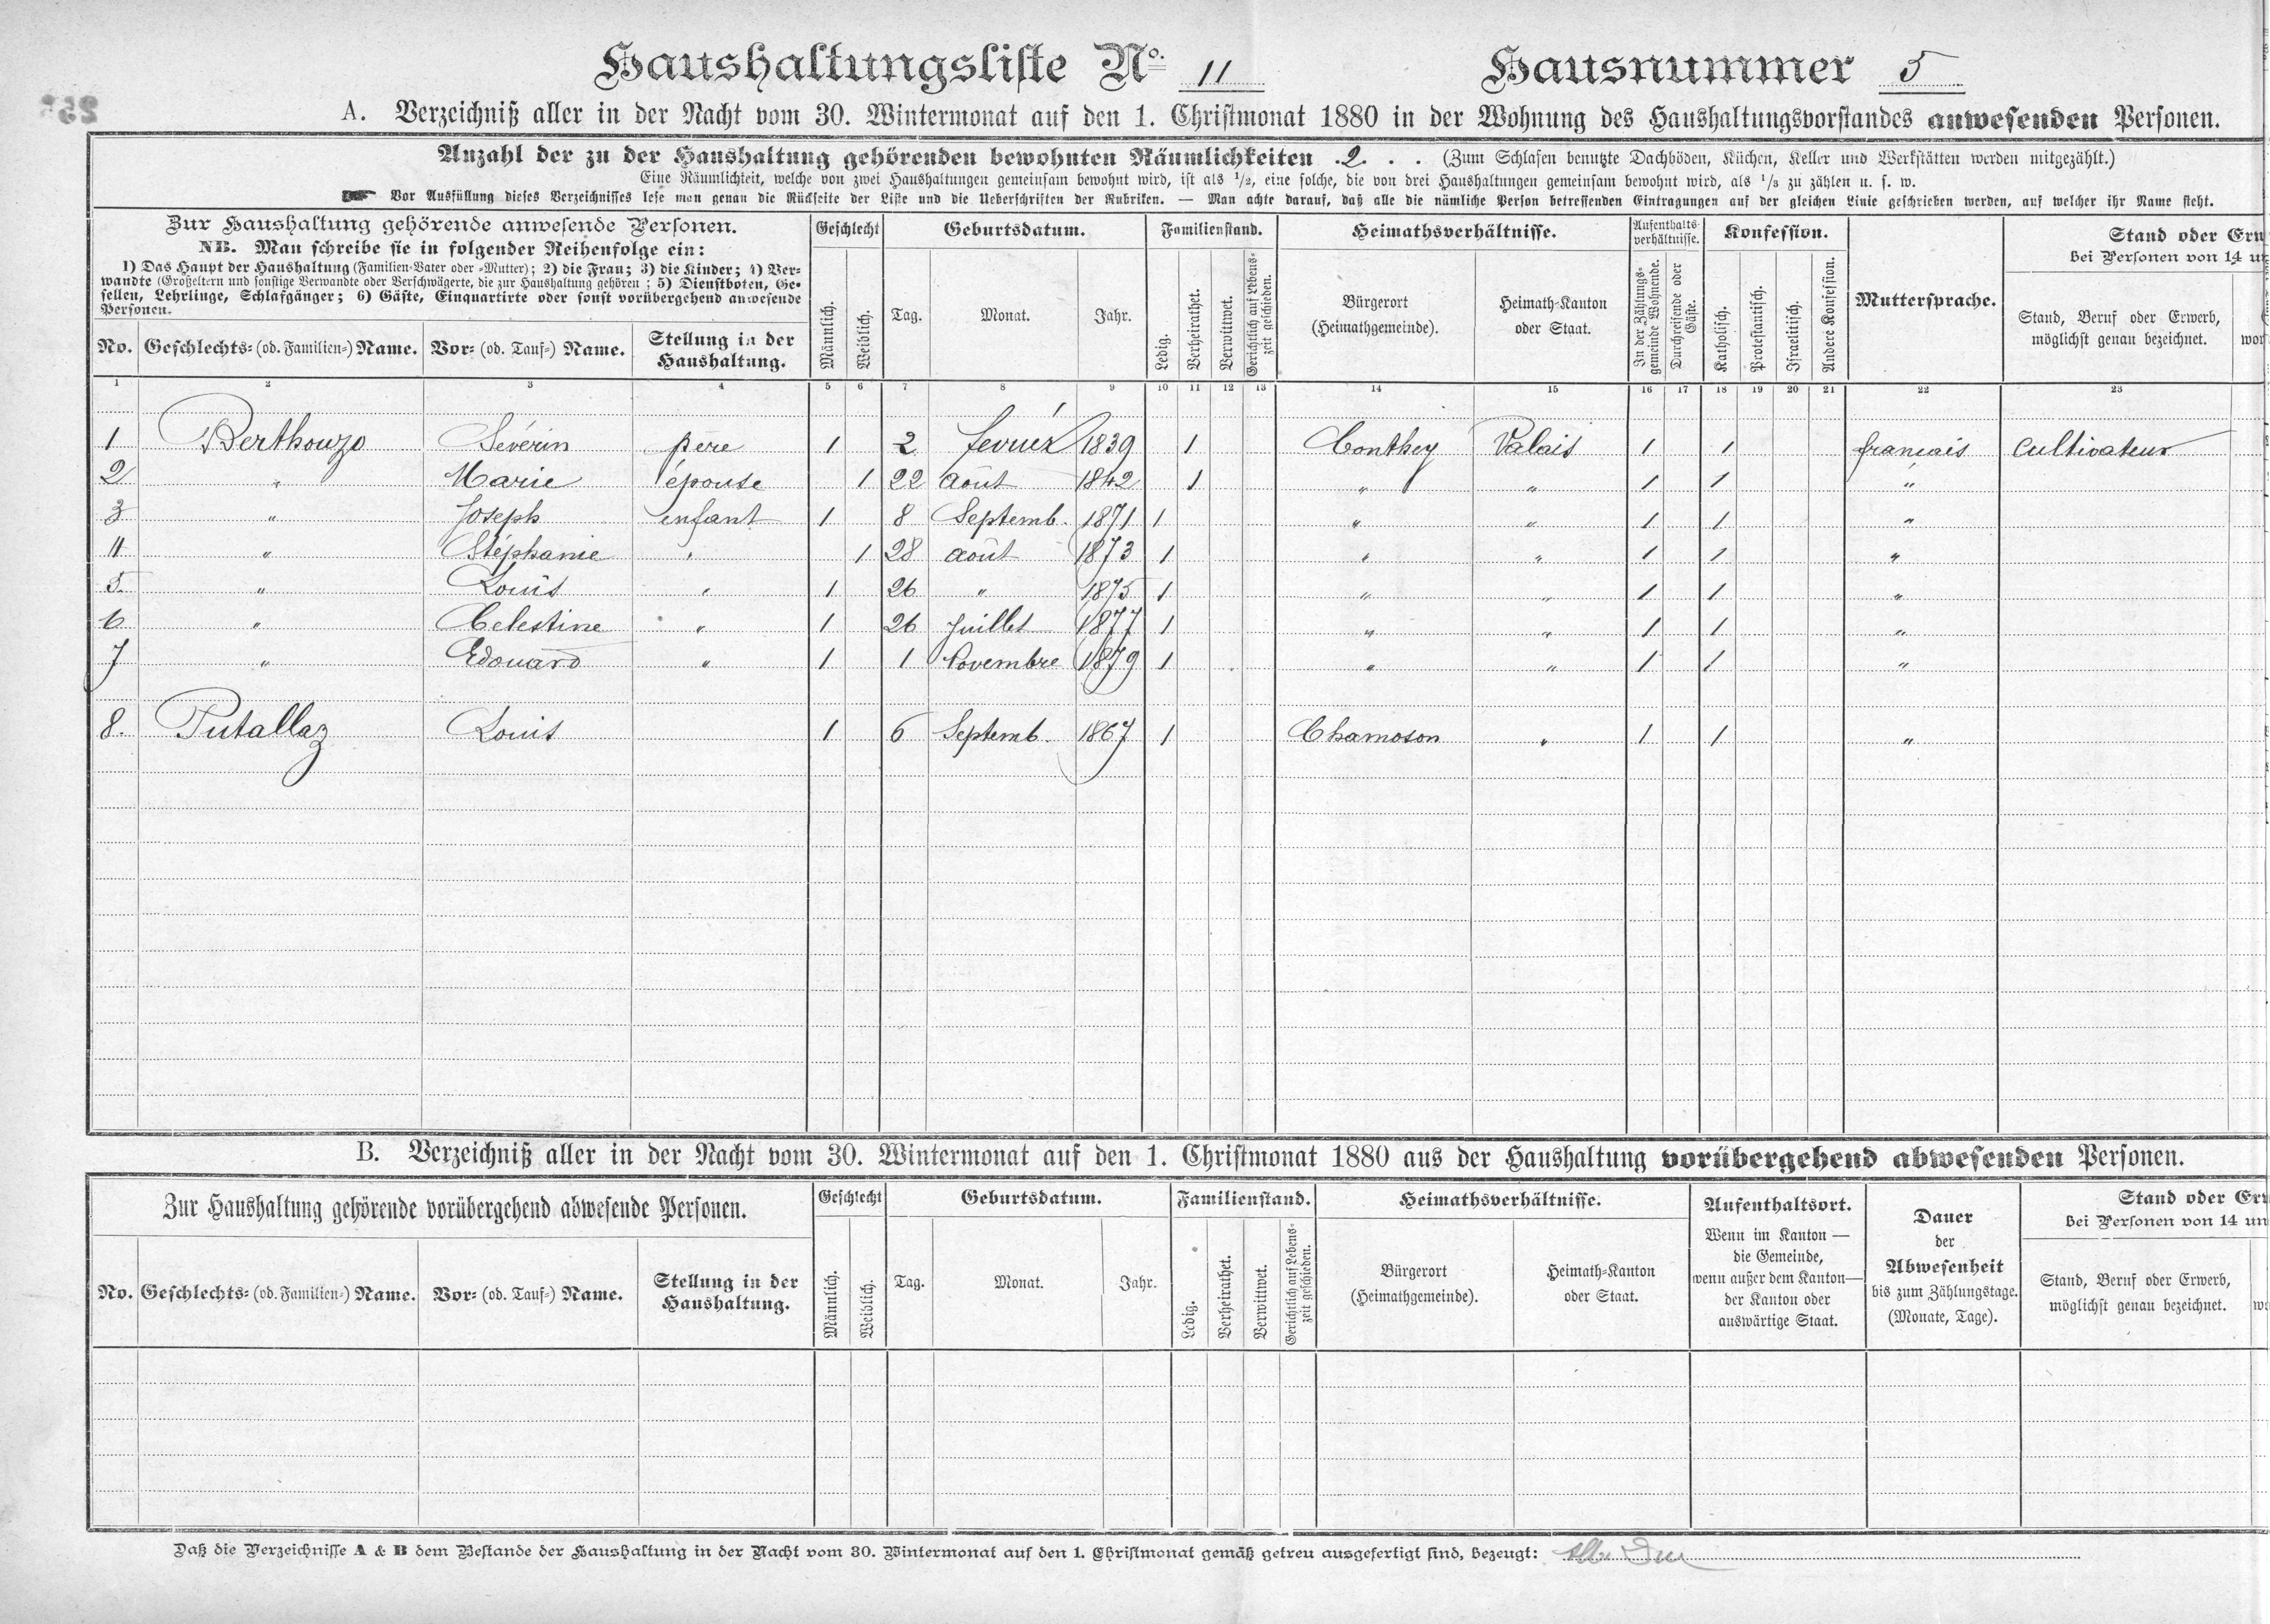 Haushaltungsliste No. 11 Hausnummer 5
A. Verzeichniß aller in der Nacht vom 30. Wintermonat auf den 1. Christmonat 1880 in der Wohnung des Haushaltungsvorstandes anwesenden Personen.
Anzahl der zu der Haushaltung gehörenden bewohnten Räumlichkeiten .2. . . (Zum Schlafen benutzte Dachböden, Küchen, Keller und Werkstätten werden mitgezählt.)
Eine Räumlichkeit, welche von zwei Haushaltungen gemeinsam bewohnt wird, ist als 1/2, eine solche, die von drei Haushaltungen gemeinsam bewohnt wird, als 1/3 zu zählen u. s. w.
Vor Ausfüllung dieses Verzeichnisses lese man genau die Rückseite der Liste und die Ueberschriften der Rubriken. — Man achte darauf, daß alle die nämliche Person betreffenden Eintragungen auf der gleichen Linie geschrieben werden, auf welcher ihr Name steht.
Zur Haushaltung gehörende anwesende Personen.
NB. Man schreibe sie in folgender Reihenfolge ein:
1) Das Haupt der Haushaltung (Familien-Vater oder -Mutter); 2) die Frau; 3) die Kinder; 4) Ver-
wandte (Großeltern und sonstige Verwandte oder Verschwägerte, die zur Haushaltung gehören; 5) Dienstboten, Ge-
sellen, Lehrlinge, Schlafgänger; 6) Gäste, Einquartirte oder sonst vorübergehend anwesende
Personen.
No. Geschlechts- (od. Familien-) Name. Vor- (od. Tauf-) Name. Stellung in der
Haushaltung.
Geschlecht
Männlich.
Weiblich.
Geburtsdatum.
Tag. Monat. Jahr.
Familienstand.
Ledig.
Verheirathet.
Verwittwet.
Gerichtlich auf Lebens-
zeit geschieden.
Heimathsverhältnisse.
Bürgerort
(Heimathgemeinde).
Heimath-Kanton
oder Staat.
Aufenthalts-
verhältnisse.
In der Zählungs-
gemeinde Wohnende.
Durchreisende oder
Gäste.
Konfession.
Katholisch.
Protestantisch.
Israelitisch.
Andere Konfession.
Muttersprache.
Stand oder Erw
bei Personen von 14 un
Stand, Beruf oder Erwerb,
möglichst genau bezeichnet.
1 2 3 4 5 6 7 8 9 10 11 12 13 14 15 16 17 18 19 20 21 22 23
1 Berthouzo Sévérin père 1 2 fevrier 1839 1 Conthey Valais 1 1 francais cultivateur
2 " Marie épouse 1 22 Août 1842 1 " " 1 1 "
3 " Joseph enfant 1 8 Septemb. 1871 1 " " 1 1 "
4 " Stéphanie " 1 28 août 1873 1 " " 1 1 "
5. " Louis " 1 26 " 1875 1 " " 1 1 "
6 " Celestine " 1 26 Juillet 1877 1 " " 1 1 "
7 " Edouard " 1 1 Novembre 1879 1 " " 1 1 "
8. Putallaz Louis 1 6 Septemb. 1867 1 Chamoson " 1 1 "
B. Verzeichniß aller in der Nacht vom 30. Wintermonat auf den 1. Christmonat 1880 aus der Haushaltung vorübergehend abwesenden Personen.
Zur Haushaltung gehörende vorübergehend abwesende Personen.
No. Geschlechts- (od. Familien-) Name. Vor- (od. Tauf-) Name. Stellung in der
Haushaltung.
Geschlecht
Männlich.
Weiblich.
Geburtsdatum.
Tag. Monat. Jahr.
Familienstand.
Ledig.
Verheirathet.
Verwittwet.
Gerichtlich auf Lebens-
zeit geschieden.
Heimathsverhältnisse.
Bürgerort
(Heimathgemeinde).
Heimath-Kanton
oder Staat.
Aufenthaltsort.
Wenn im Kanton —
die Gemeinde,
wenn außer dem Kanton—
der Kanton oder
auswärtige Staat.
Dauer
der
Abwesenheit
bis zum Zählungstage.
(Monate, Tage).
Stand oder Erw
bei Personen von 14 un
Stand, Beruf oder Erwerb,
möglichst genau bezeichnet.
Daß die Verzeichnisse A & B dem Bestande der Haushaltung in der Nacht vom 30. Wintermonat auf den 1. Christmonat gemäß getreu ausgefertigt sind, bezeugt: